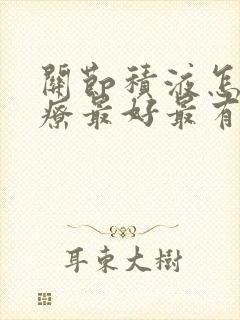 關節積液怎
療最好最有
耳東大樹